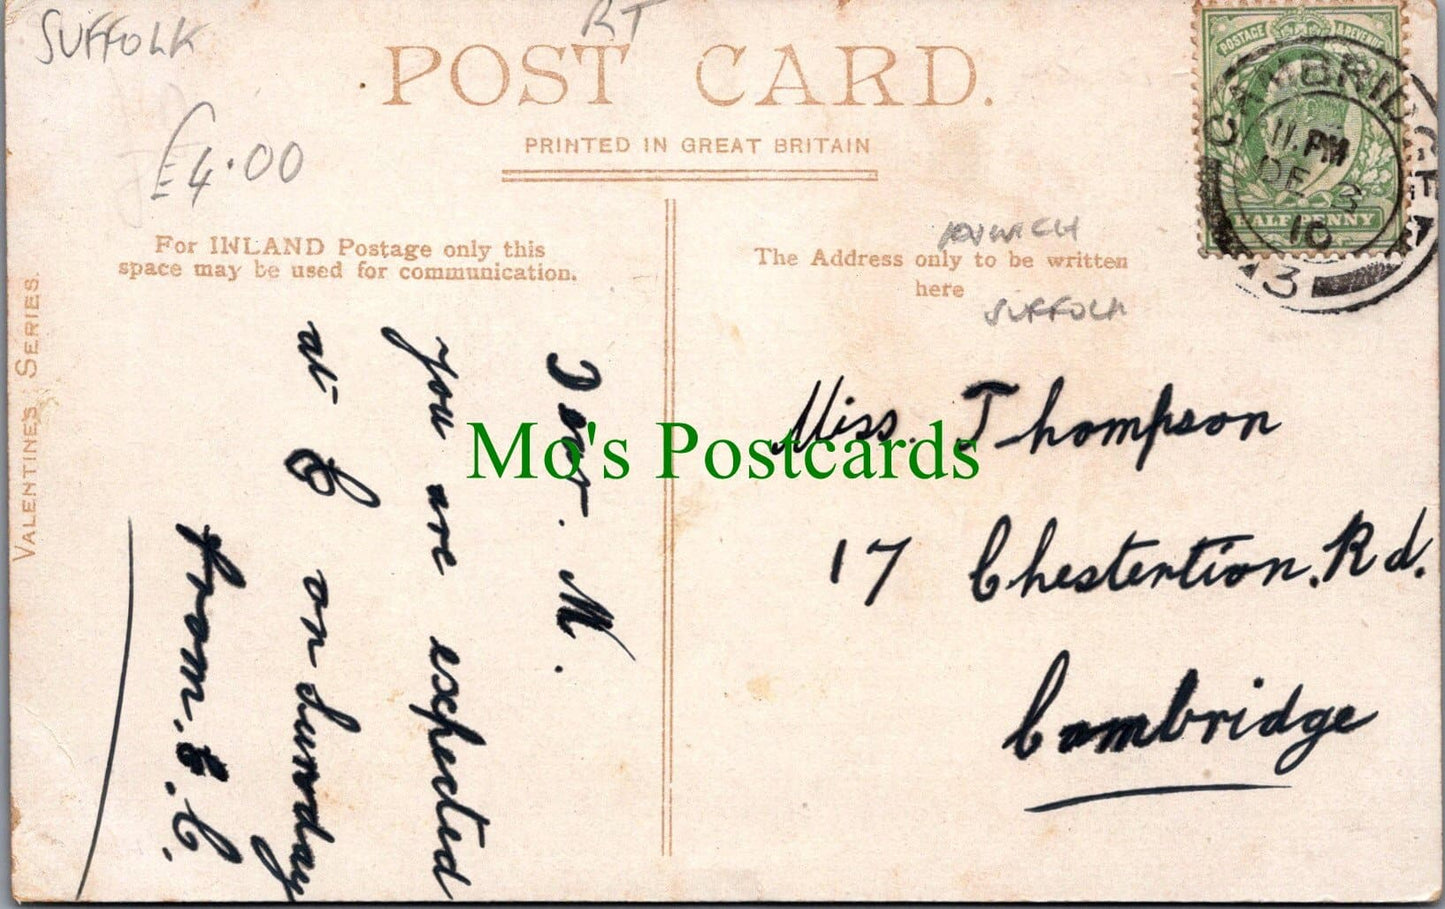 SUFFOLK
RT
£4.00
POST CARD.
PRINTED IN GREAT BRITAIN
For INLAND Postage only this
space may be used for communication.
The Address only to be written
here
IPSWICH
SUFFOLK
VALENTINE'S SERIES.
POSTAGE & REVENUE
HALFPENNY
CAMBRIDGE
11. PM
DE 3
10
3
Dear. M.
you are expected
at C on Sunday
from. E. C.
Miss. Thompson
17 Chestertion. Rd.
Cambridge
Mo's Postcards